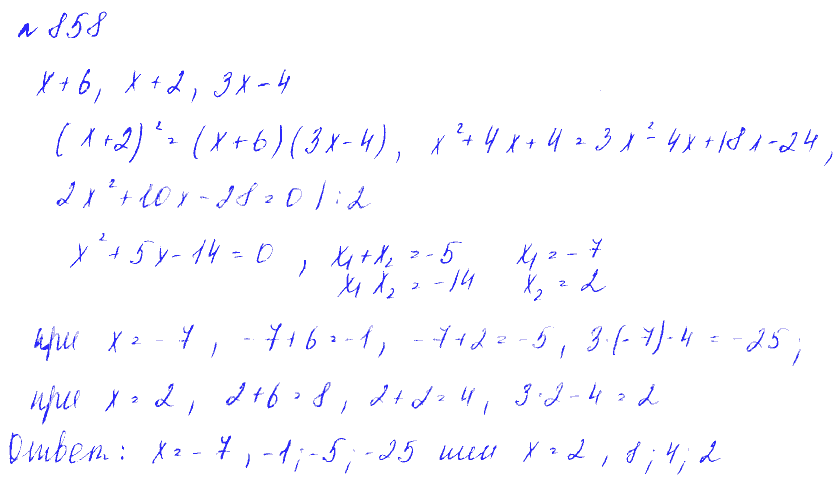 № 858
x+6, x+2, 3x-4
(x+2)² = (x+6)(3x-4), x²+4x+4=3x²-4x+18x-24,
2x²+10x-28=0 | :2
x²+5x-14=0, x₁+x₂=-5 x₁=-7
x₁x₂=-14 x₂=2
при x=-7, -7+6=-1, -7+2=-5, 3·(-7)-4=-25;
при x=2, 2+6=8, 2+2=4, 3·2-4=2
Ответ: x=-7, -1;-5;-25 или x=2, 8;4;2